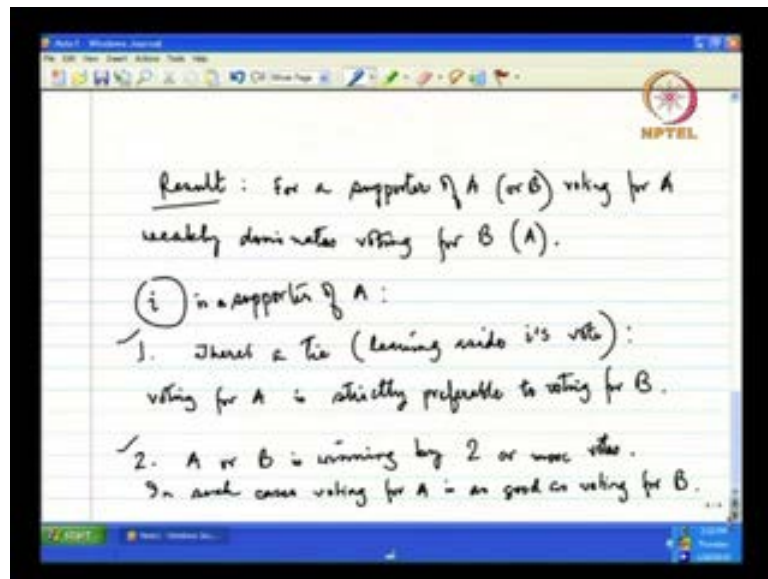 Note1 - Windows Journal
File Edit View Insert Actions Tools Help
NPTEL
Result : For a supporter of A (or B) voting for A
weakly dominates voting for B (A).
i is a supporter of A :
1. There's a tie (leaving aside i's vote) :
voting for A is strictly preferable to voting for B.
2. A or B is winning by 2 or more votes.
In such cases voting for A is as good as voting for B.
start